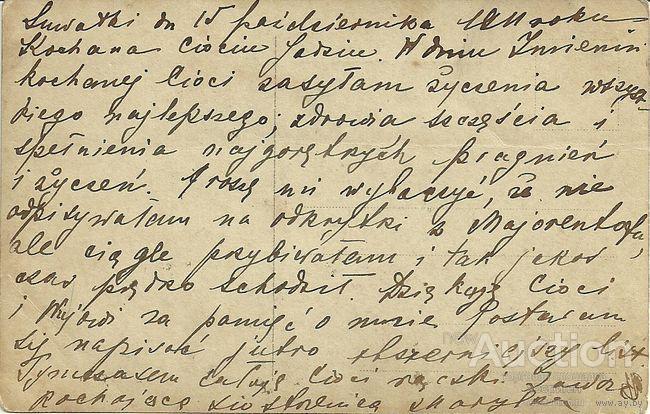 Suwałki dn 15 października 1911 roku
Kochana Ciociu Jadziu. W dniu Imienin
kochanej Cioci zasyłam życzenia wszyst-
kiego najlepszego, zdrowia szczęścia i
spełnienia najgorętrzych pragnień
i życzeń. Proszę mi wybaczyć, że nie
odpisywałam na odkrytki z Majorenhofu,
ale ciągle przybiwałam i tak jakoś
czas prędko schodził. Dziękuję Cioci
i Wujowi za pamięć o mnie Postaram
się napisać jutro obszerniejszy list
Tymczasem całuję Cioci rączki
kochająca siostrzenica
Auction
www.ay.by